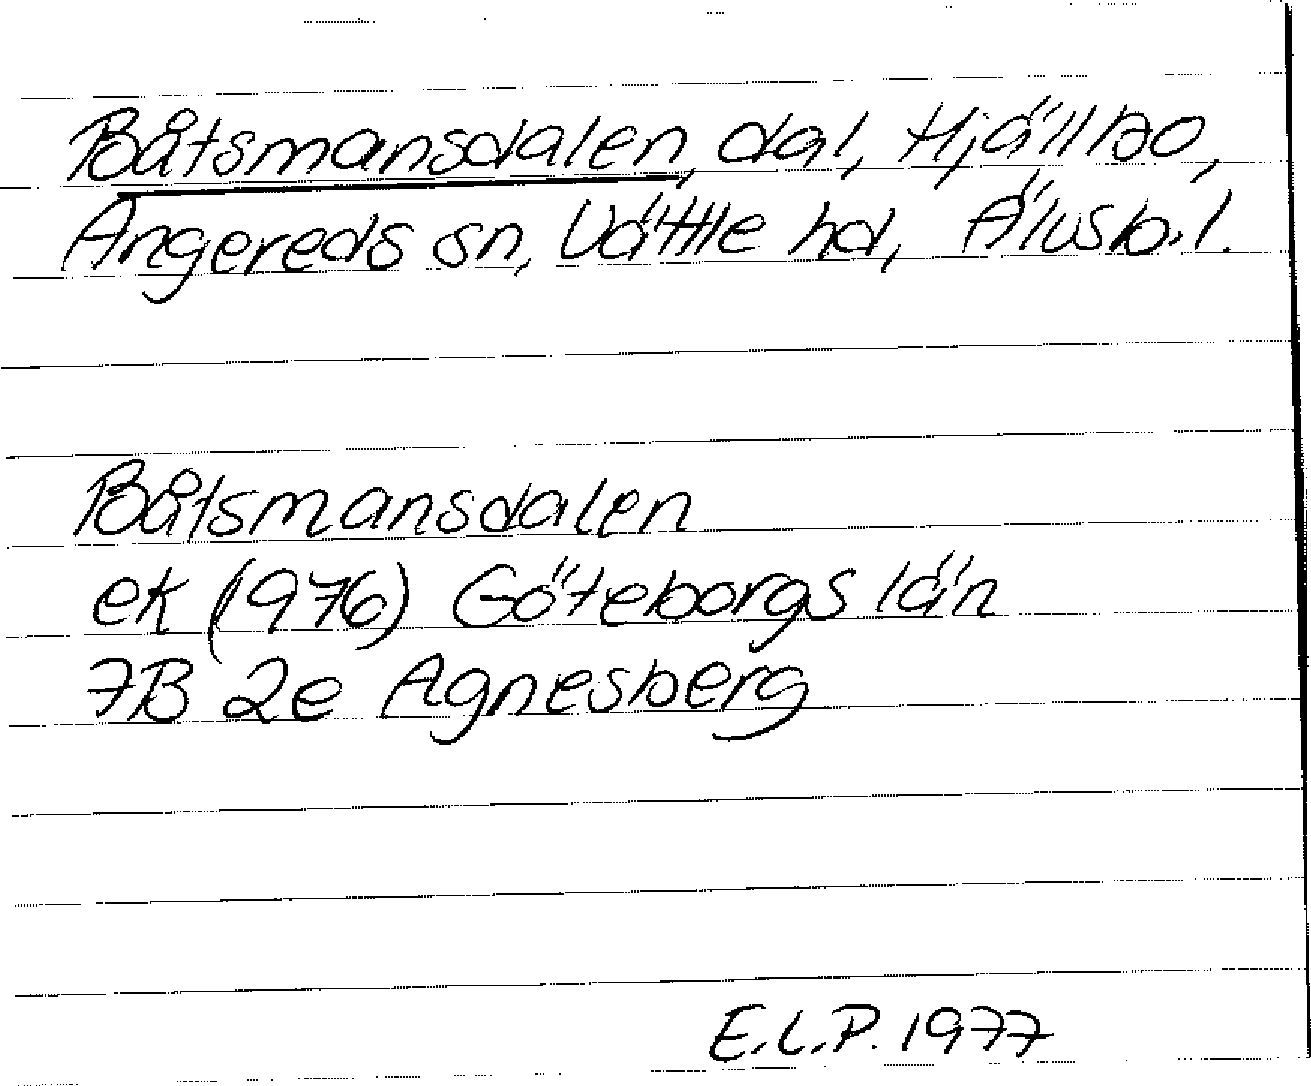 Båtsmansdalen, dal, Hjällbo,
Angereds sn, Vättle hd, Älvsb.l.
Båtsmansdalen
ek (1976) Göteborgs län
7B 2e Agnesberg
E.L.P. 1977